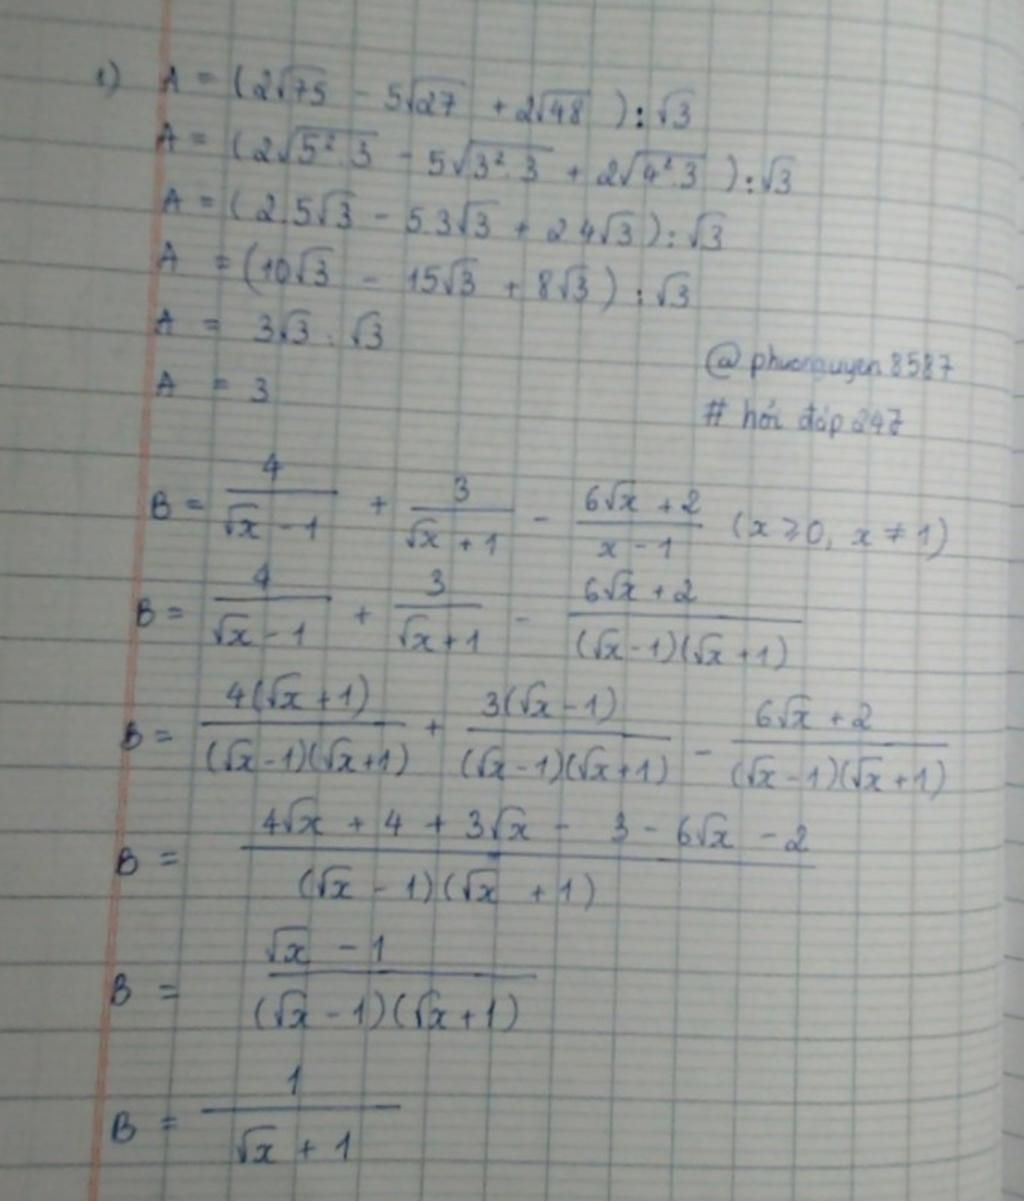 1) A = (2√75 - 5√27 + 2√48) : √3
A = (2√5².3 - 5√3².3 + 2√4².3) : √3
A = (2.5√3 - 5.3√3 + 2.4√3) : √3
A = (10√3 - 15√3 + 8√3) : √3
A = 3√3 : √3
A = 3
@phuonguyen8587
# hỏi đáp 247
B = 4/(√x - 1) + 3/(√x + 1) - (6√x + 2)/(x - 1) (x ≥ 0, x ≠ 1)
B = 4/(√x - 1) + 3/(√x + 1) - (6√x + 2)/((√x - 1)(√x + 1))
B = 4(√x + 1)/((√x - 1)(√x + 1)) + 3(√x - 1)/((√x - 1)(√x + 1)) - (6√x + 2)/((√x - 1)(√x + 1))
B = (4√x + 4 + 3√x - 3 - 6√x - 2)/((√x - 1)(√x + 1))
B = (√x - 1)/((√x - 1)(√x + 1))
B = 1/(√x + 1)